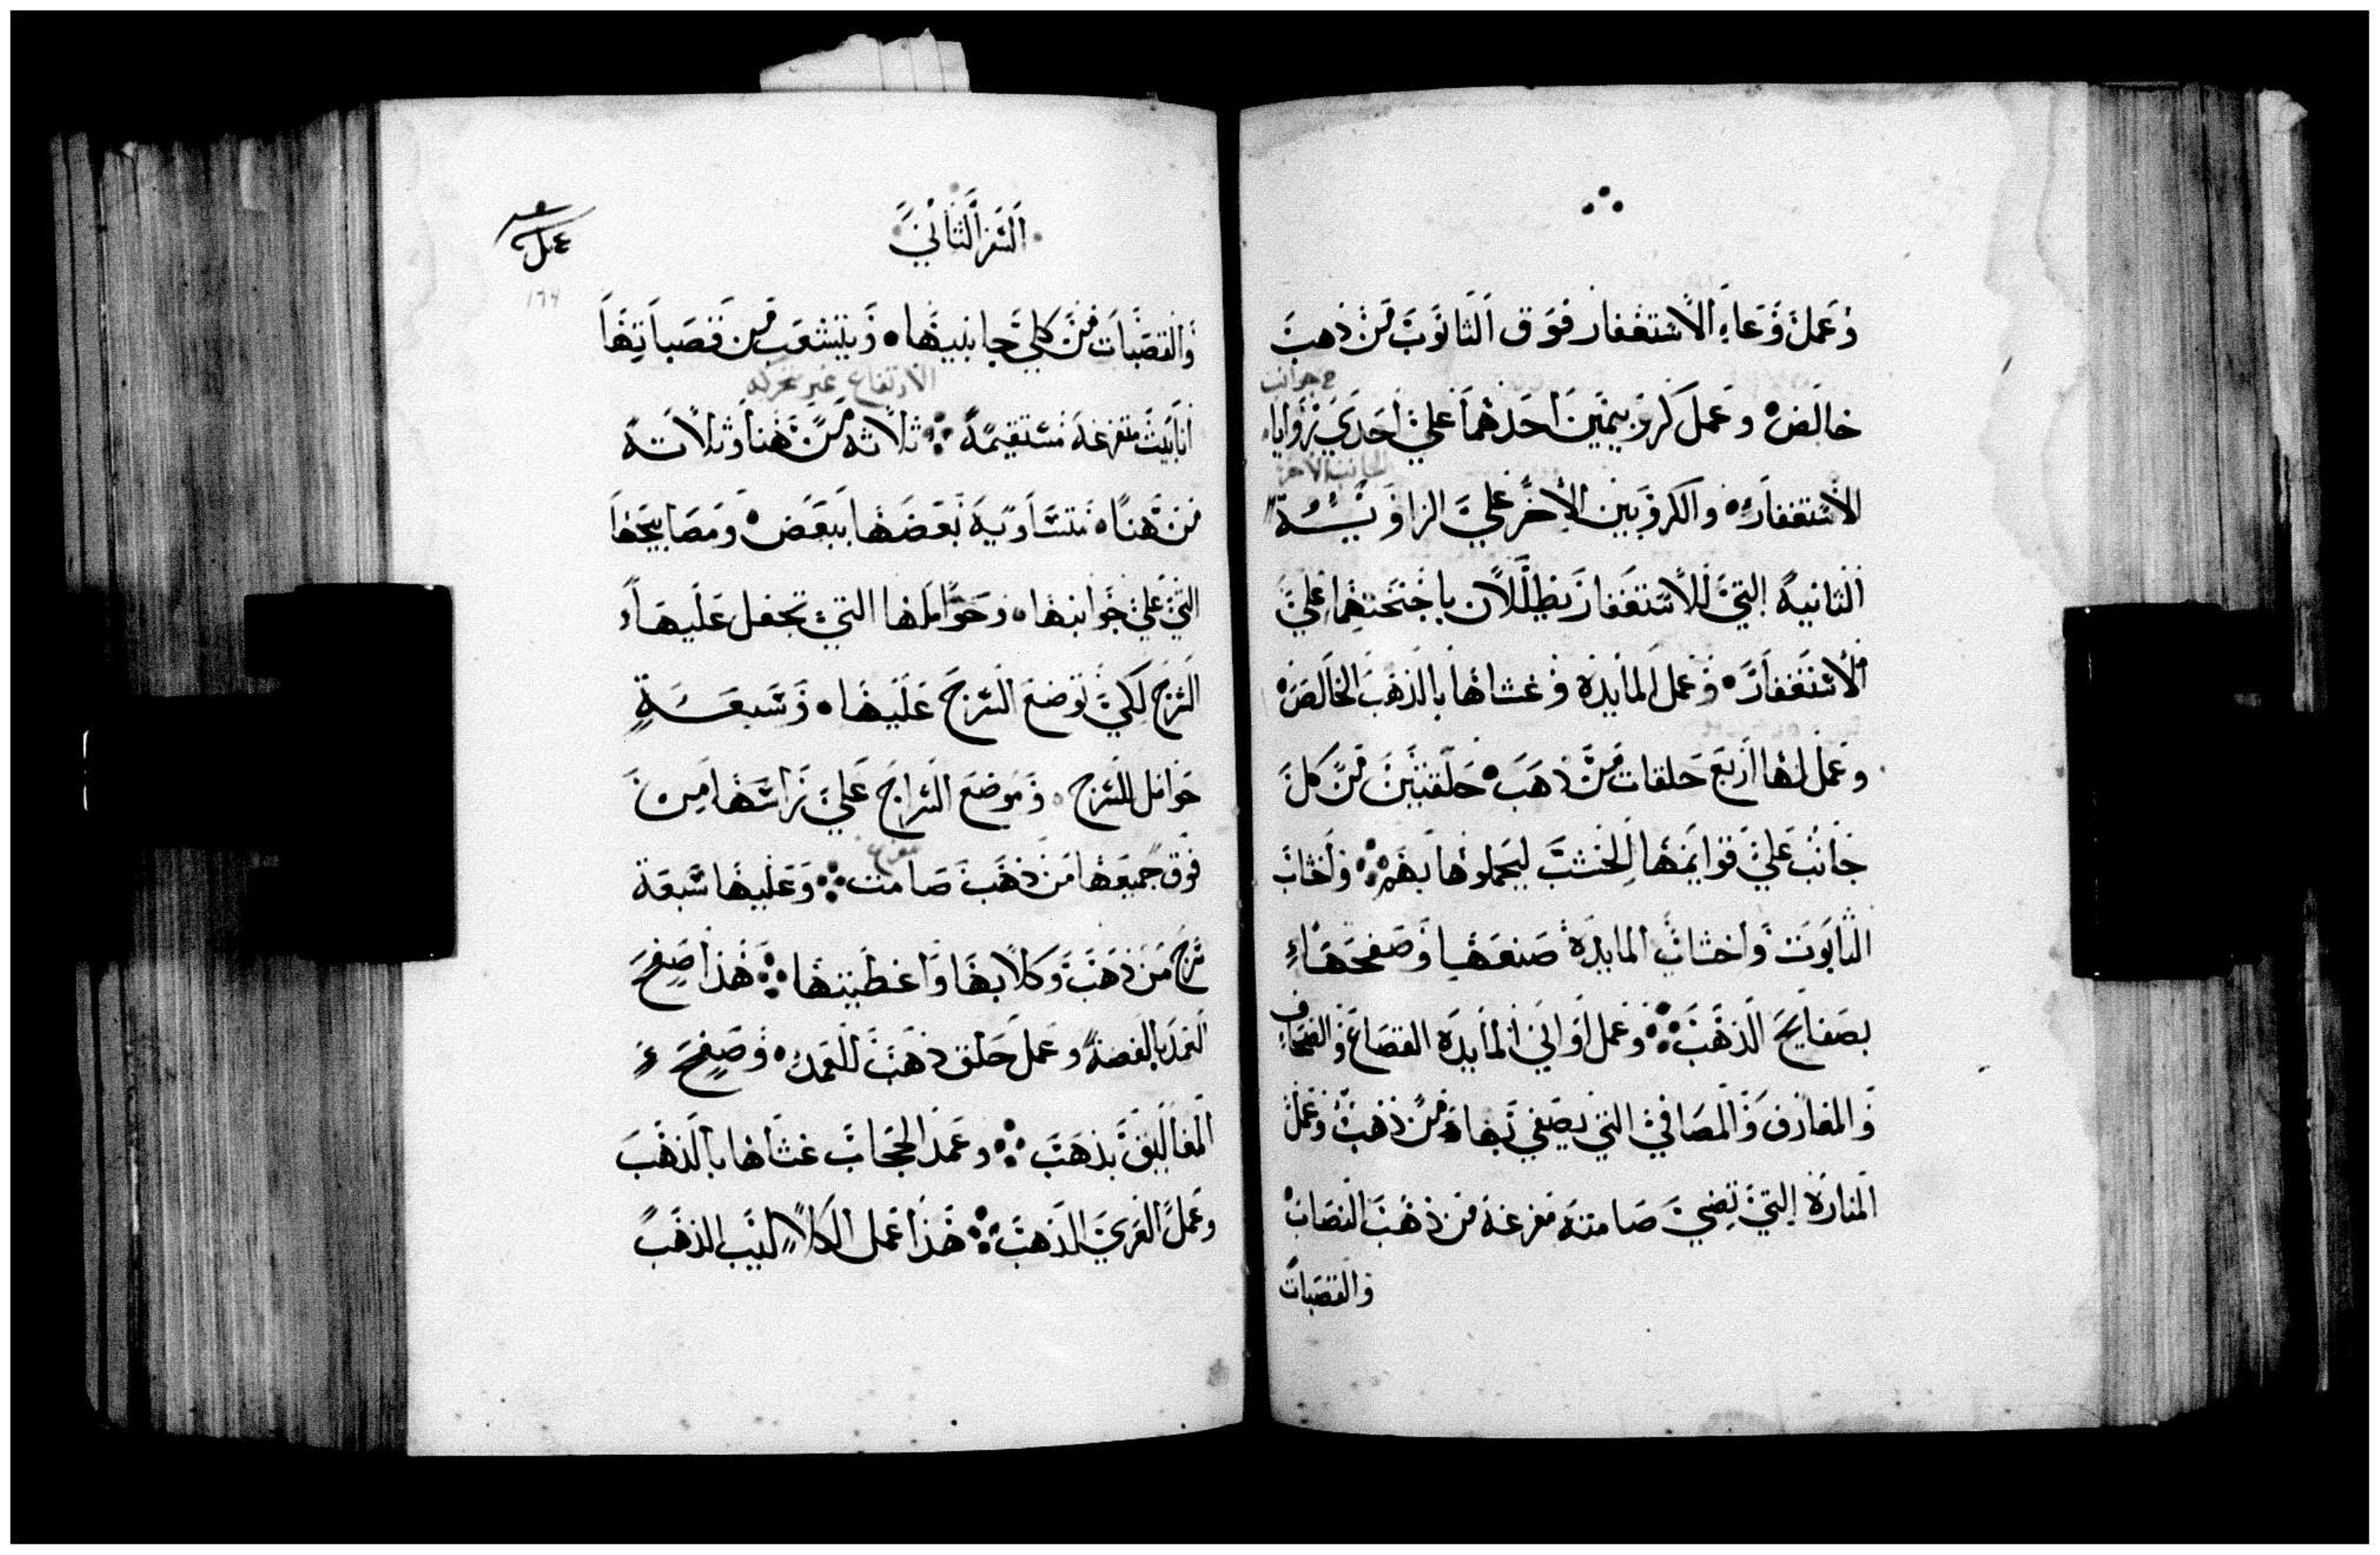 وعمل وعاء الاستغفار فوق التابوت من ذهب
ح جوانب
خالص وعمل كروبيمين احدهما علي احدي زوايا
الجانب الاخر
الاستغفار والكروبين الاخر علي الزاوية
الثانية التي للاستغفار يظللان باجنحتهما علي
الاستغفار وعمل المايدة وغشاها بالذهب الخالص
وعمل لها اربع حلقات من ذهب حلقتين من كل
جانب علي قوايمها الخشب ليحملوها بهم واخشاب
التابوت واخشاب المايدة صنعها وصفحها
بصفايح الذهب وعمل اواني المايدة القصاع والصحاف
والمغارف والمصافي التي يصفي بها من ذهب وعمل
المنارة التي تضي صامتة مفرغة من ذهب القصاب
والقصبات
السفر الثاني
والقصبات من كلي جانبيها ويتشعب من قصباتها
الارتفاع غير
انابيب متفرغة مستقيمة ثلاثة من هنا وثلاثة
من هنا متساوية بعضها ببعض ومصابيحها
التي علي جوانبها وحواملها التي تجعل عليها
السرج لكي توضع السرج عليها وسبعة
حوامل للسرج وموضع السراج علي راسها من
مفرغ
فوق جميعها من ذهب صامت وعليها سبعة
سرج من ذهب وكلابها واغطيتها هذا صفح
العمد بالفضة وعمل حلق ذهب للعمد وصفح
المغاليق بذهب وعمد الحجاب غشاها بالذهب
وعمل العري الذهب هذا عمل الكلاليب الذهب